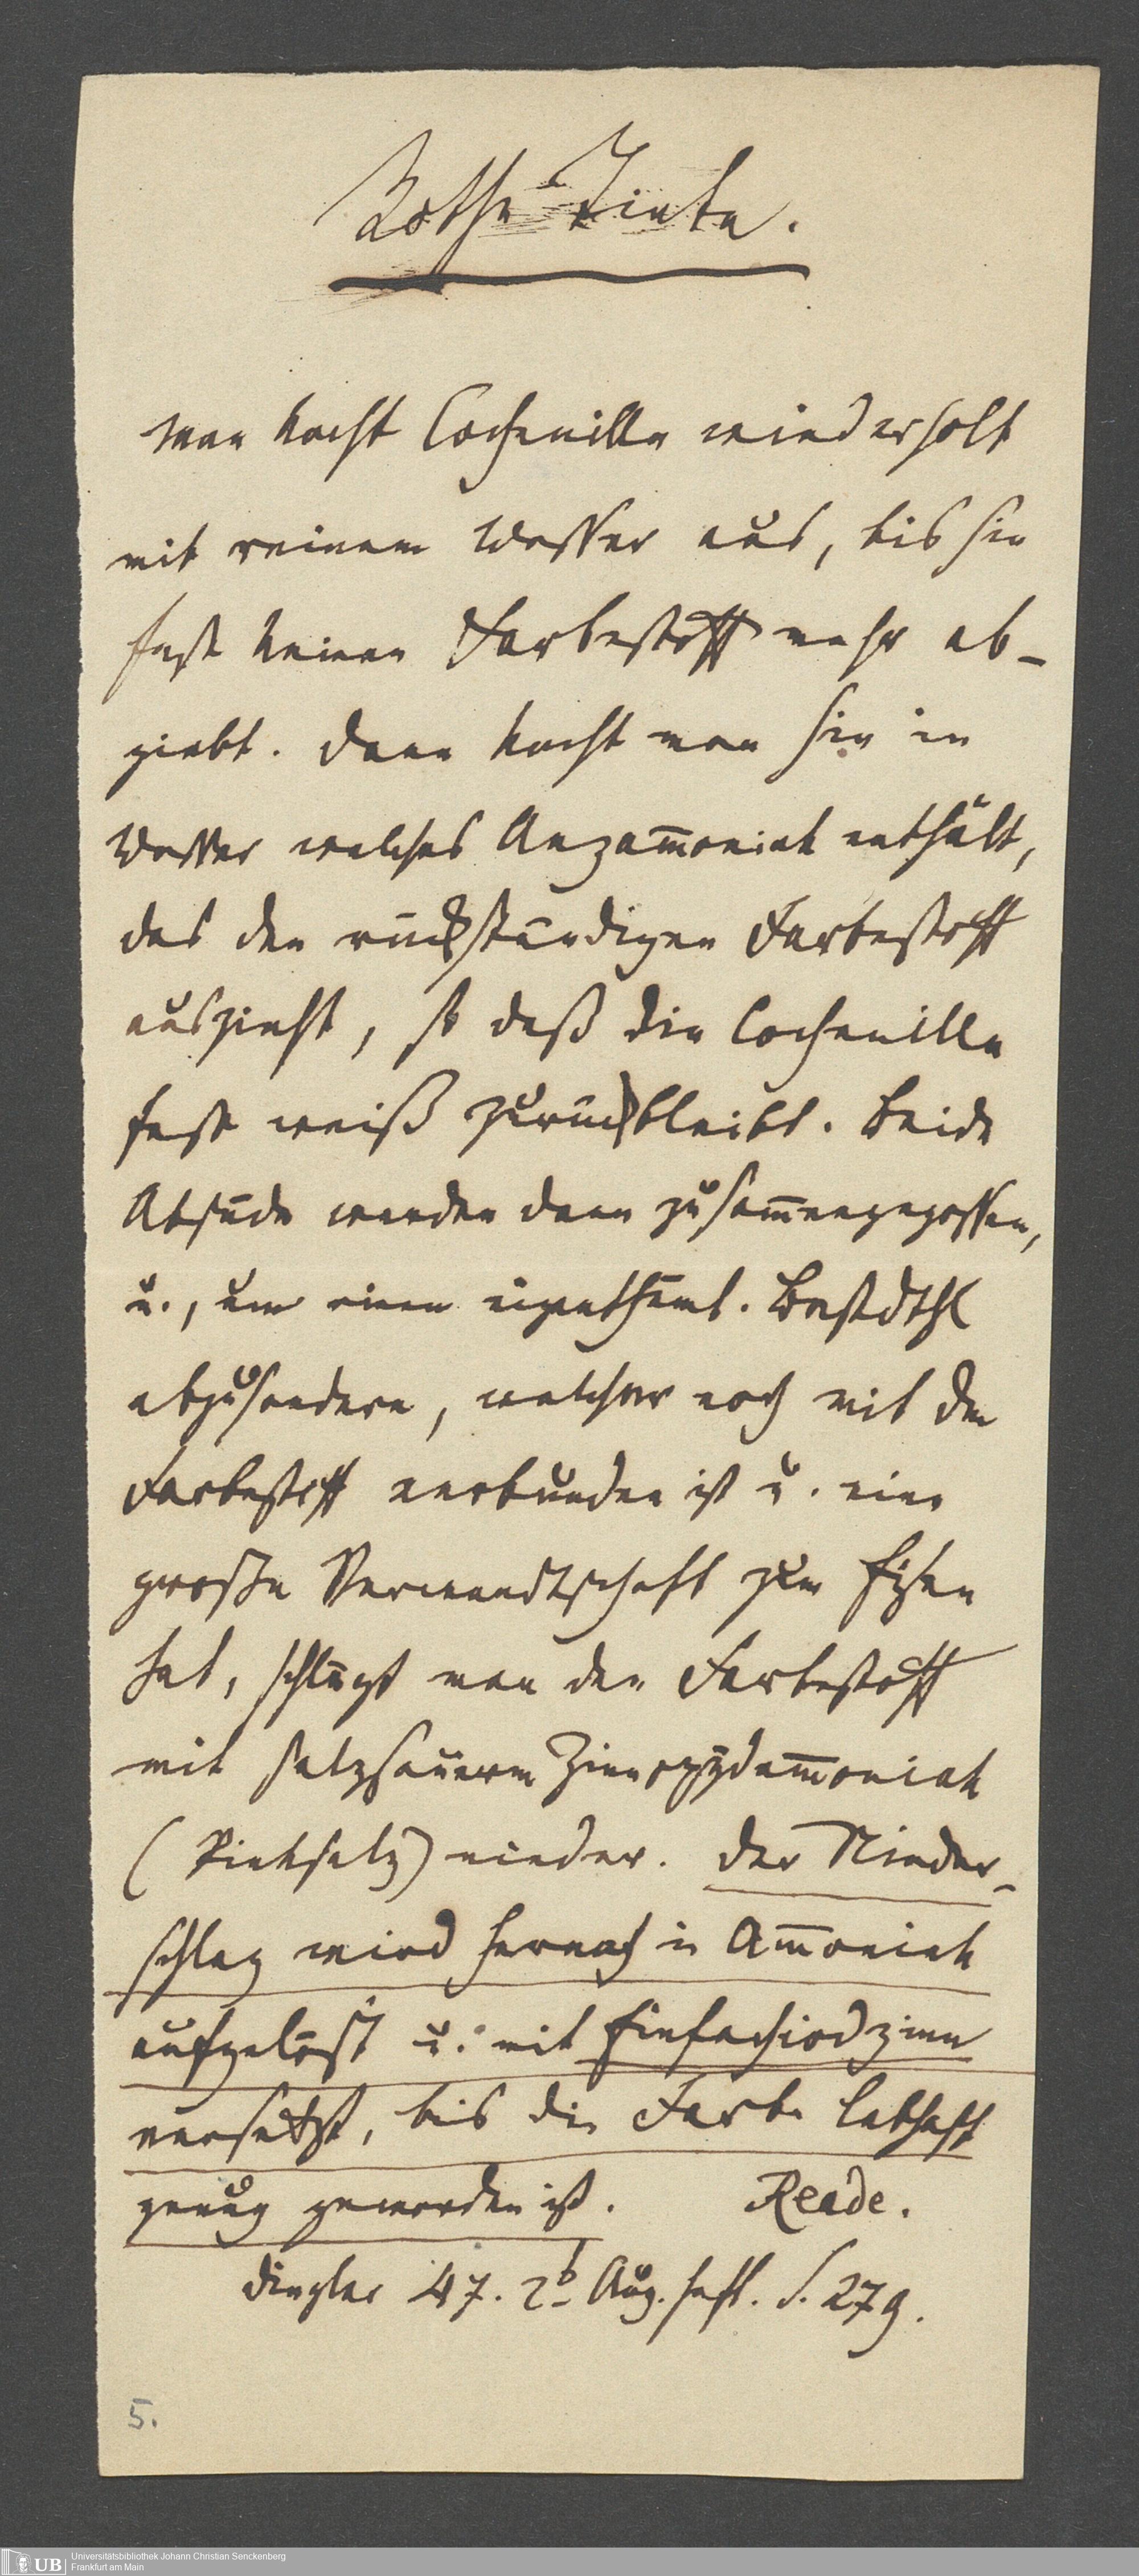 Rothe Tinte.
Man kocht Cochenille wiederholt
mit reinem Wasser aus, bis sie
fast keinen Farbestoff mehr ab-
giebt. Dann kocht man sie in
Wasser welches Aezam̅oniak enthält,
das den rückständigen Farbestoff
auszieht, so daß die Cochenille
fast weiß zurückbleibt. Beide
Absüde werden dann zusam̅engegossen,
u., um einen eigenthüml. Bestdthl
abzusondern, welcher noch mit dem
Farbestoff verbunden ist u. eine
große Verwandtschaft zum Eisen
hat, schlägt man den Farbestoff
mit salzsauerm Zinnoxydam̅oniak
(Pinksalz) nieder. Der Nieder-
schlag wird hernach in Am̅oniak
aufgelöst u. mit Einfachiodzinn
versetzt, bis die Farbe lebhaft
genug geworden ist. Reade.
Dingler 47. 2t Aug. heft. S. 279.
5.
UB Universitätsbibliothek Johann Christian Senckenberg
Frankfurt am Main